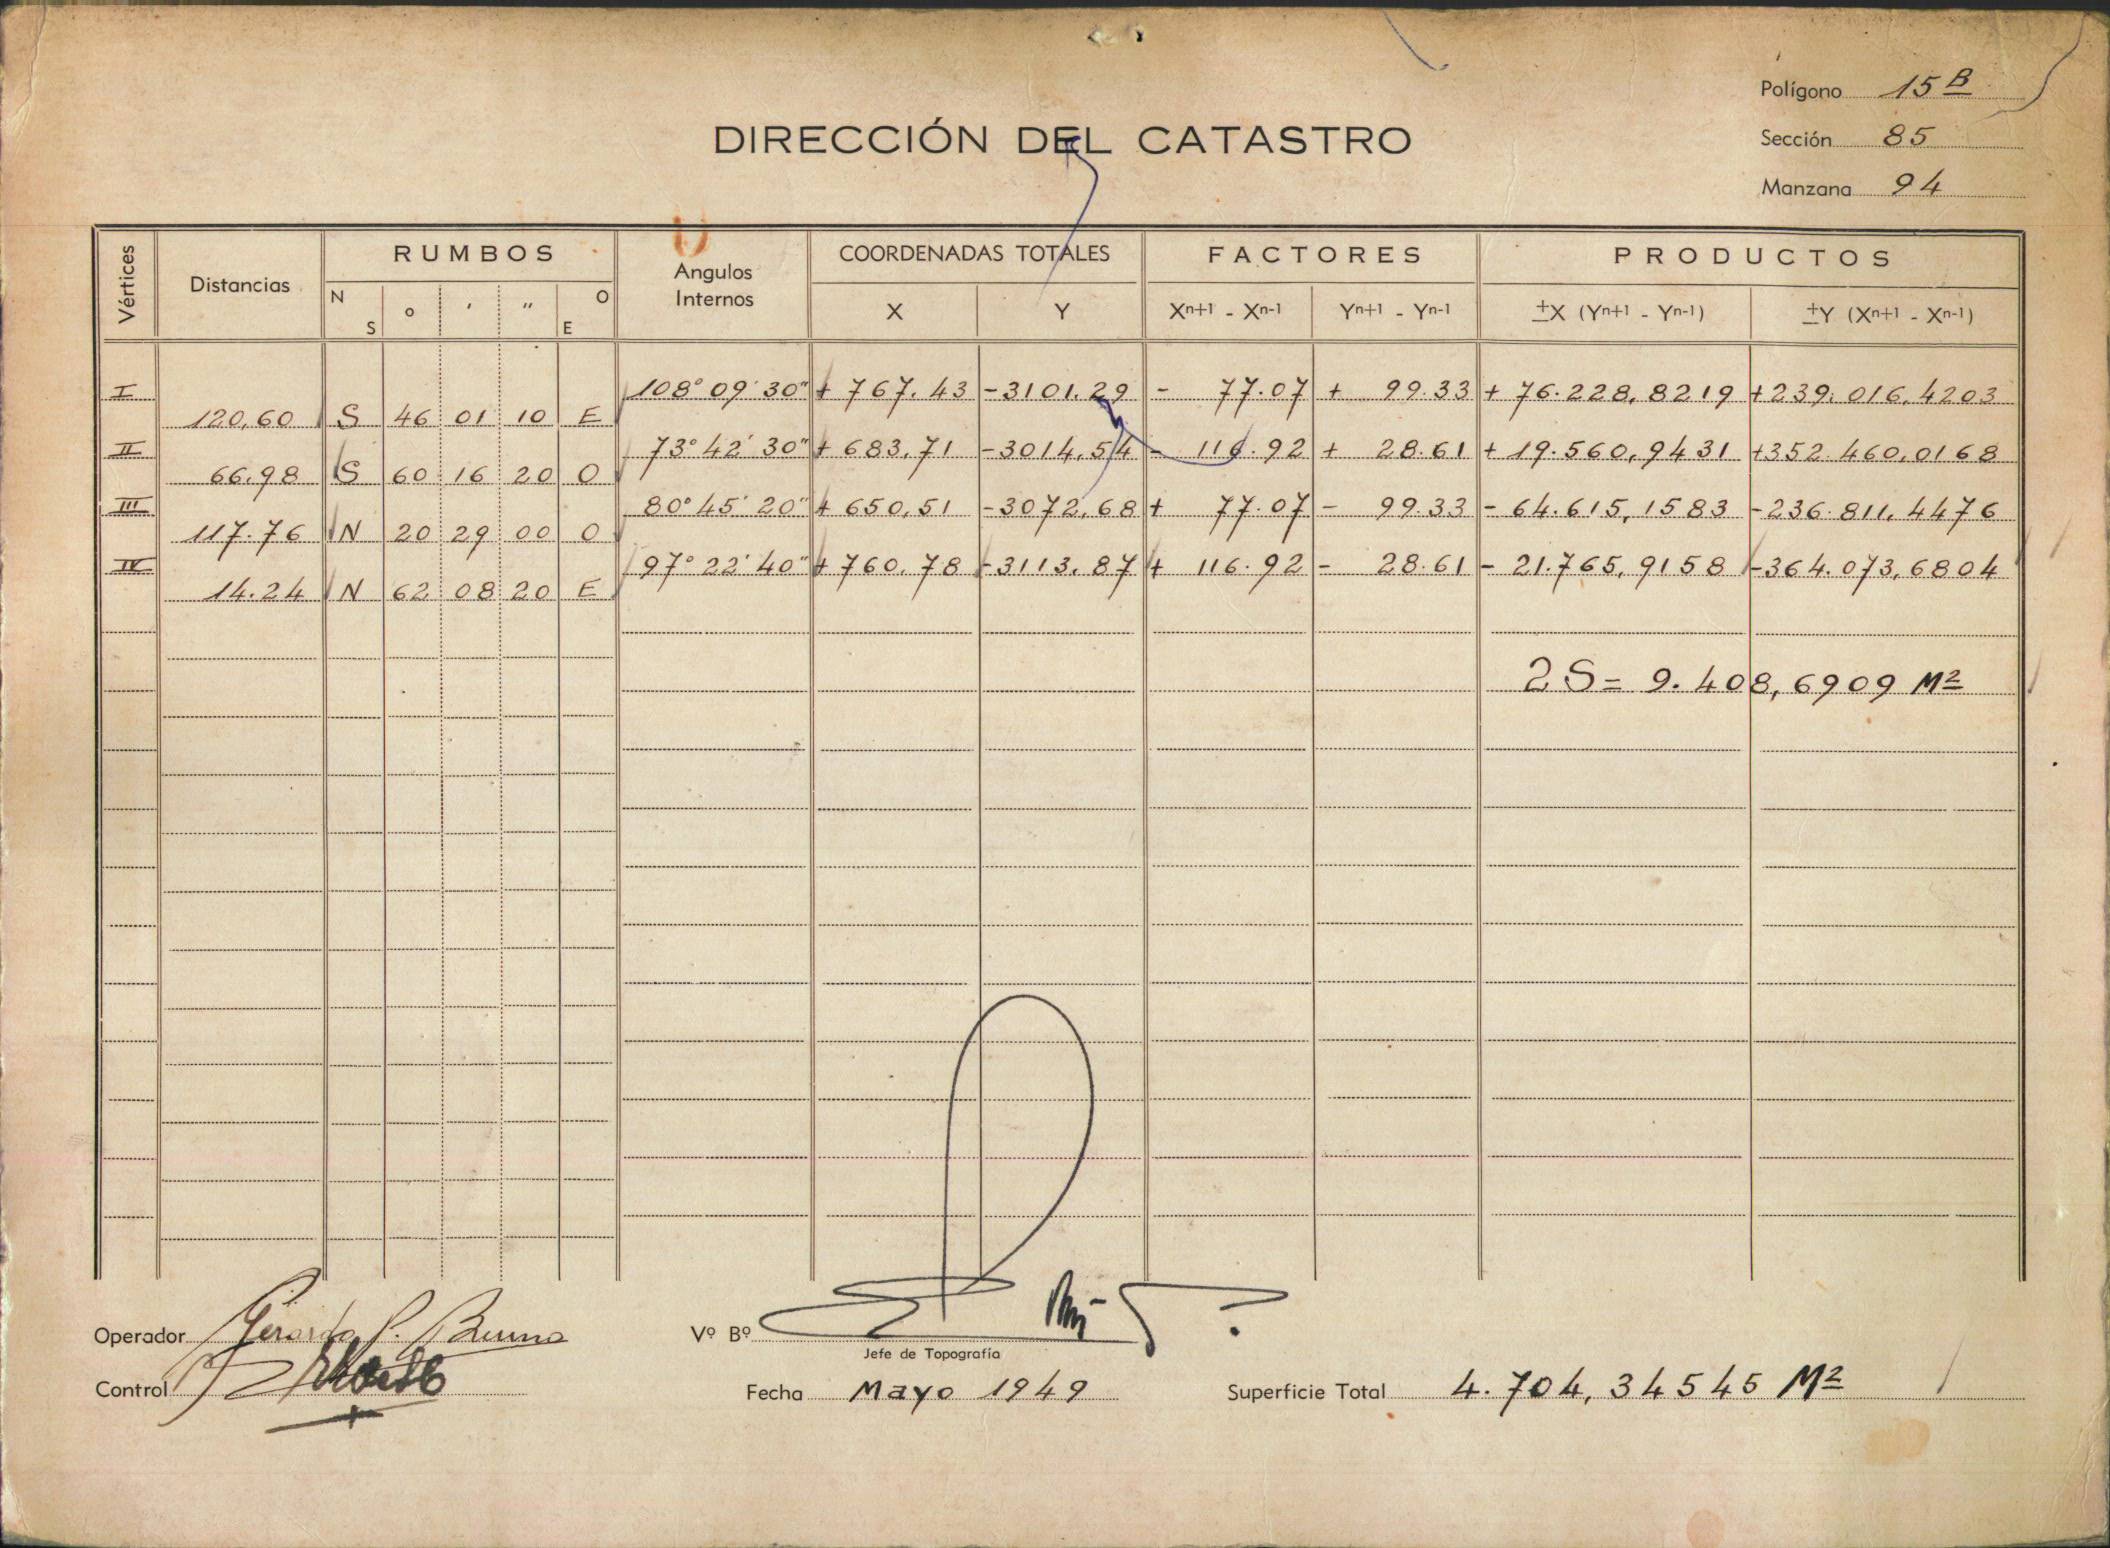 Polígono 15 B
DIRECCIÓN DEL CATASTRO
Sección 85
Manzana 94
Vértices Distancias RUMBOS Angulos Internos COORDENADAS TOTALES FACTORES PRODUCTOS
N S º ' " O E X Y Xn+1 - Xn-1 Yn+1 - Yn-1 ±X (Yn+1 - Yn-1) ±Y (Xn+1 - Xn-1)
I 108° 09' 30" + 767.43 -3101.29 - 77.07 + 99.33 + 76.228,8219 +239.016,4203
120,60 S 46 01 10 E
II 73° 42' 30" + 683,71 -3014,54 - 116.92 + 28.61 + 19.560,9431 +352.460,0168
66.98 S 60 16 20 O
III 80° 45' 20" + 650,51 -3072,68 + 77.07 - 99.33 - 64.615,1583 -236.811,4476
117.76 N 20 29 00 O
IV 97° 22' 40" + 760.78 -3113.87 + 116.92 - 28.61 - 21.765,9158 -364.073,6804
14.24 N 62 08 20 E
2S= 9.408,6909 M2
Operador Gerardo P. Bruno
Vº Bº
Jefe de Topografía
Control
Fecha Mayo 1949
Superficie Total 4.704,34545 M2